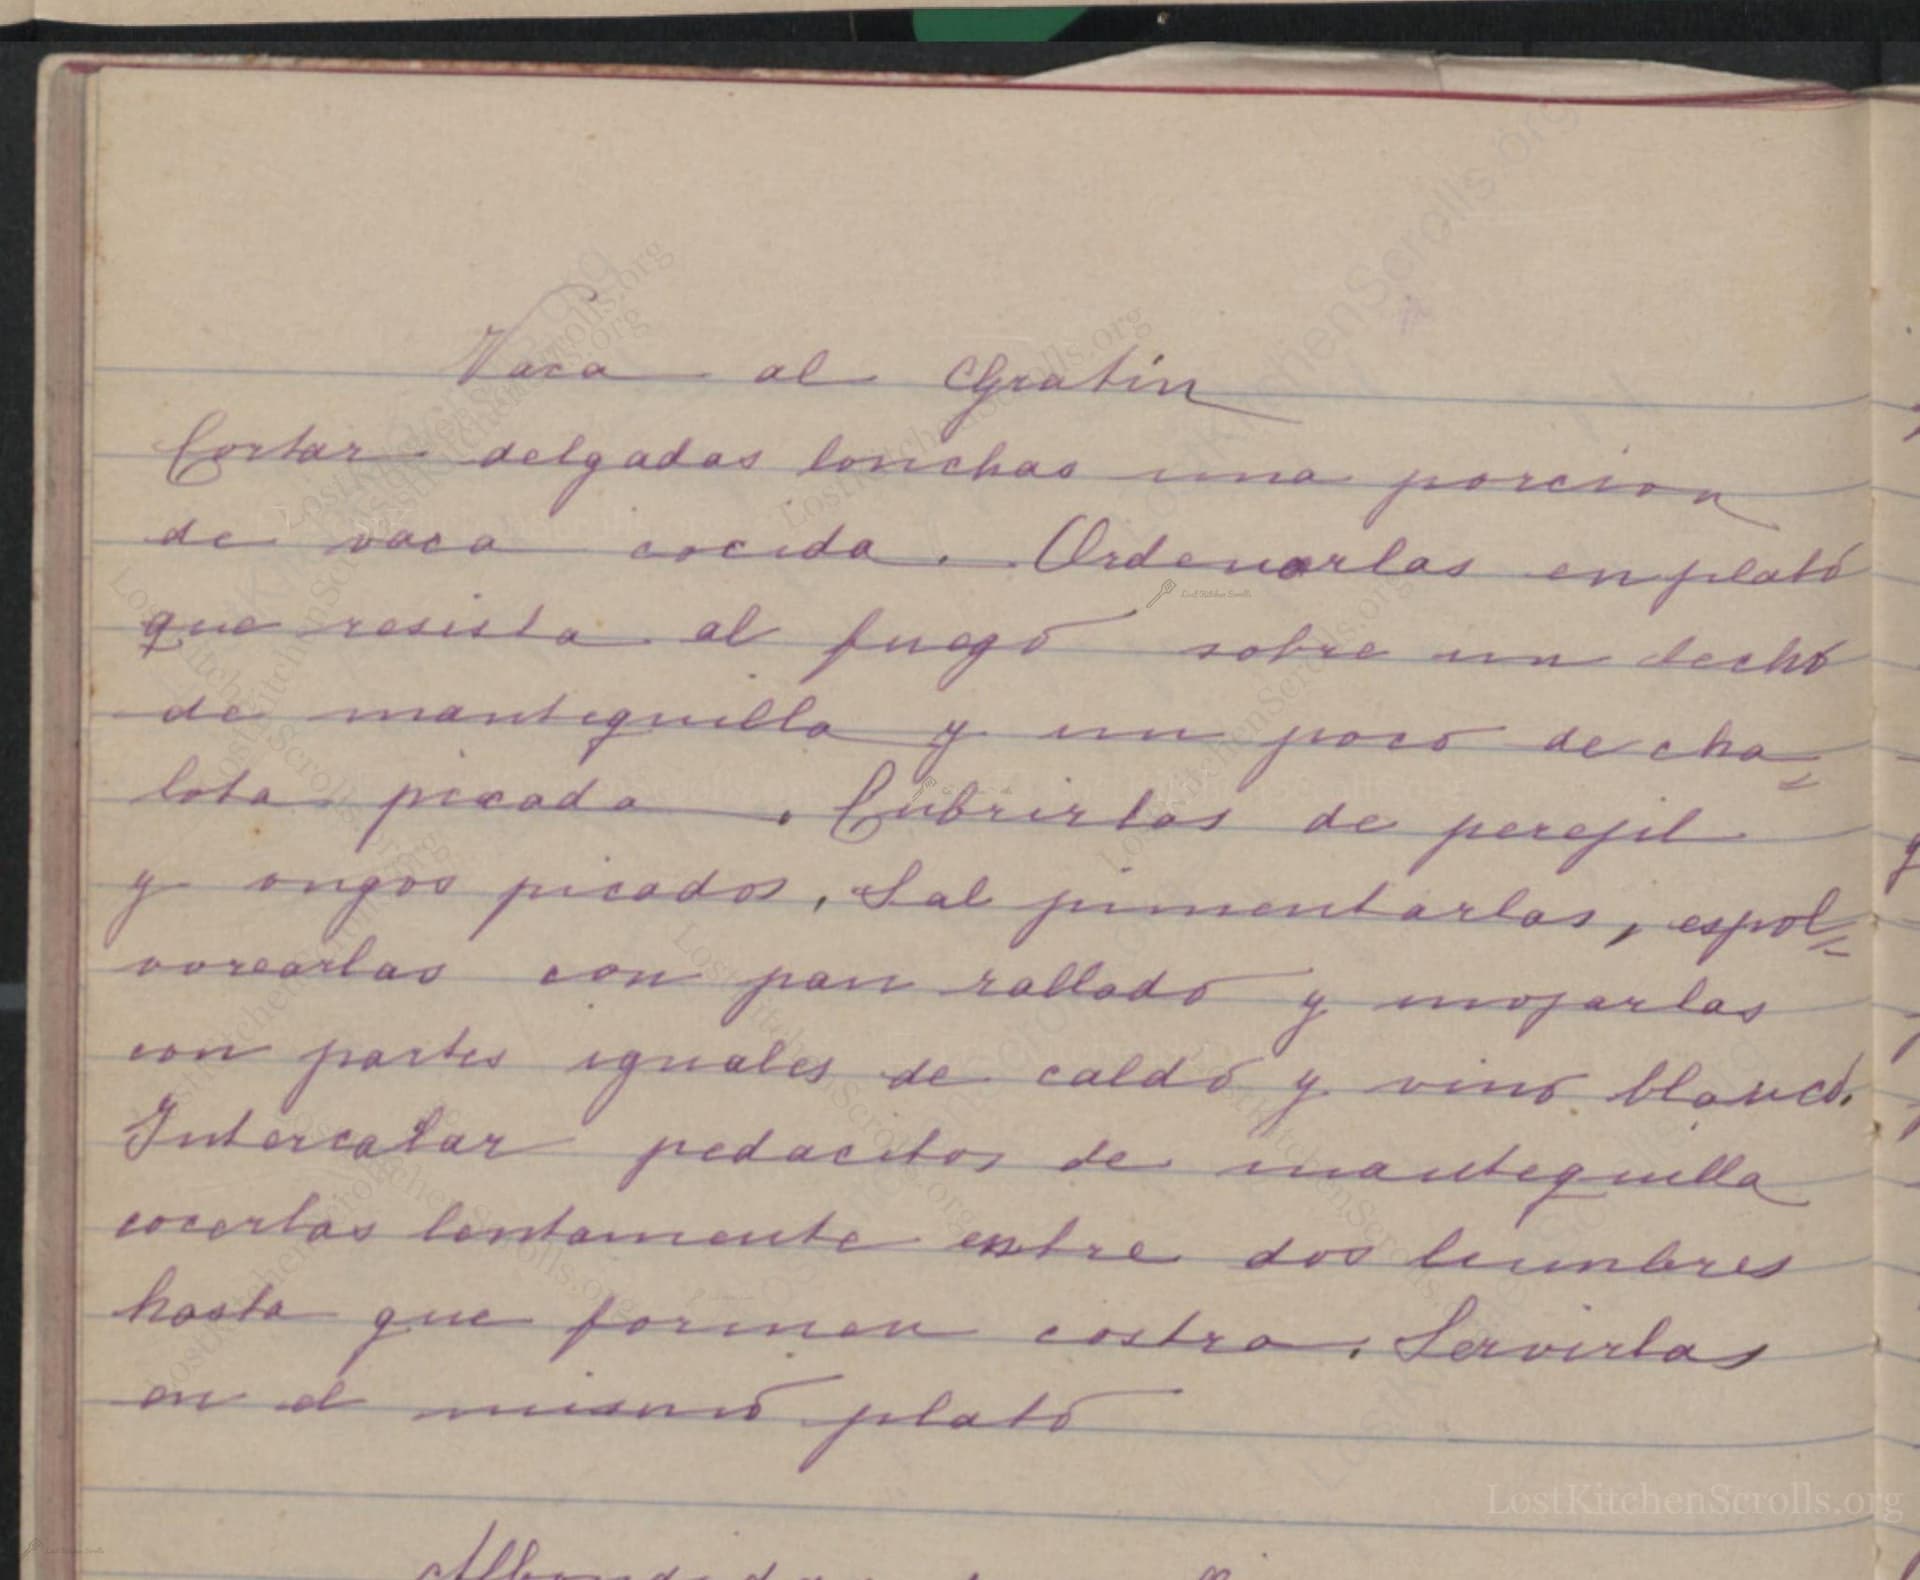 Vaca al Gratin
Cortar delgadas lonchas una porcion
de vaca cocida. Ordenarlas en plato
que resista al fuego sobre un lecho
de mantequilla y un poco de cha=
lota picada. Cubrirlas de perejil
y ongos picados, Sal pimentarlas, espol=
vorearlas con pan rallado y mojarlas
con partes iguales de caldo y vino blanco.
Intercalar pedacitos de mantequilla
cocerlas lentamente entre dos lumbres
hasta que formen costra. Servirlas
en el mismo plato
LostKitchenScrolls.org